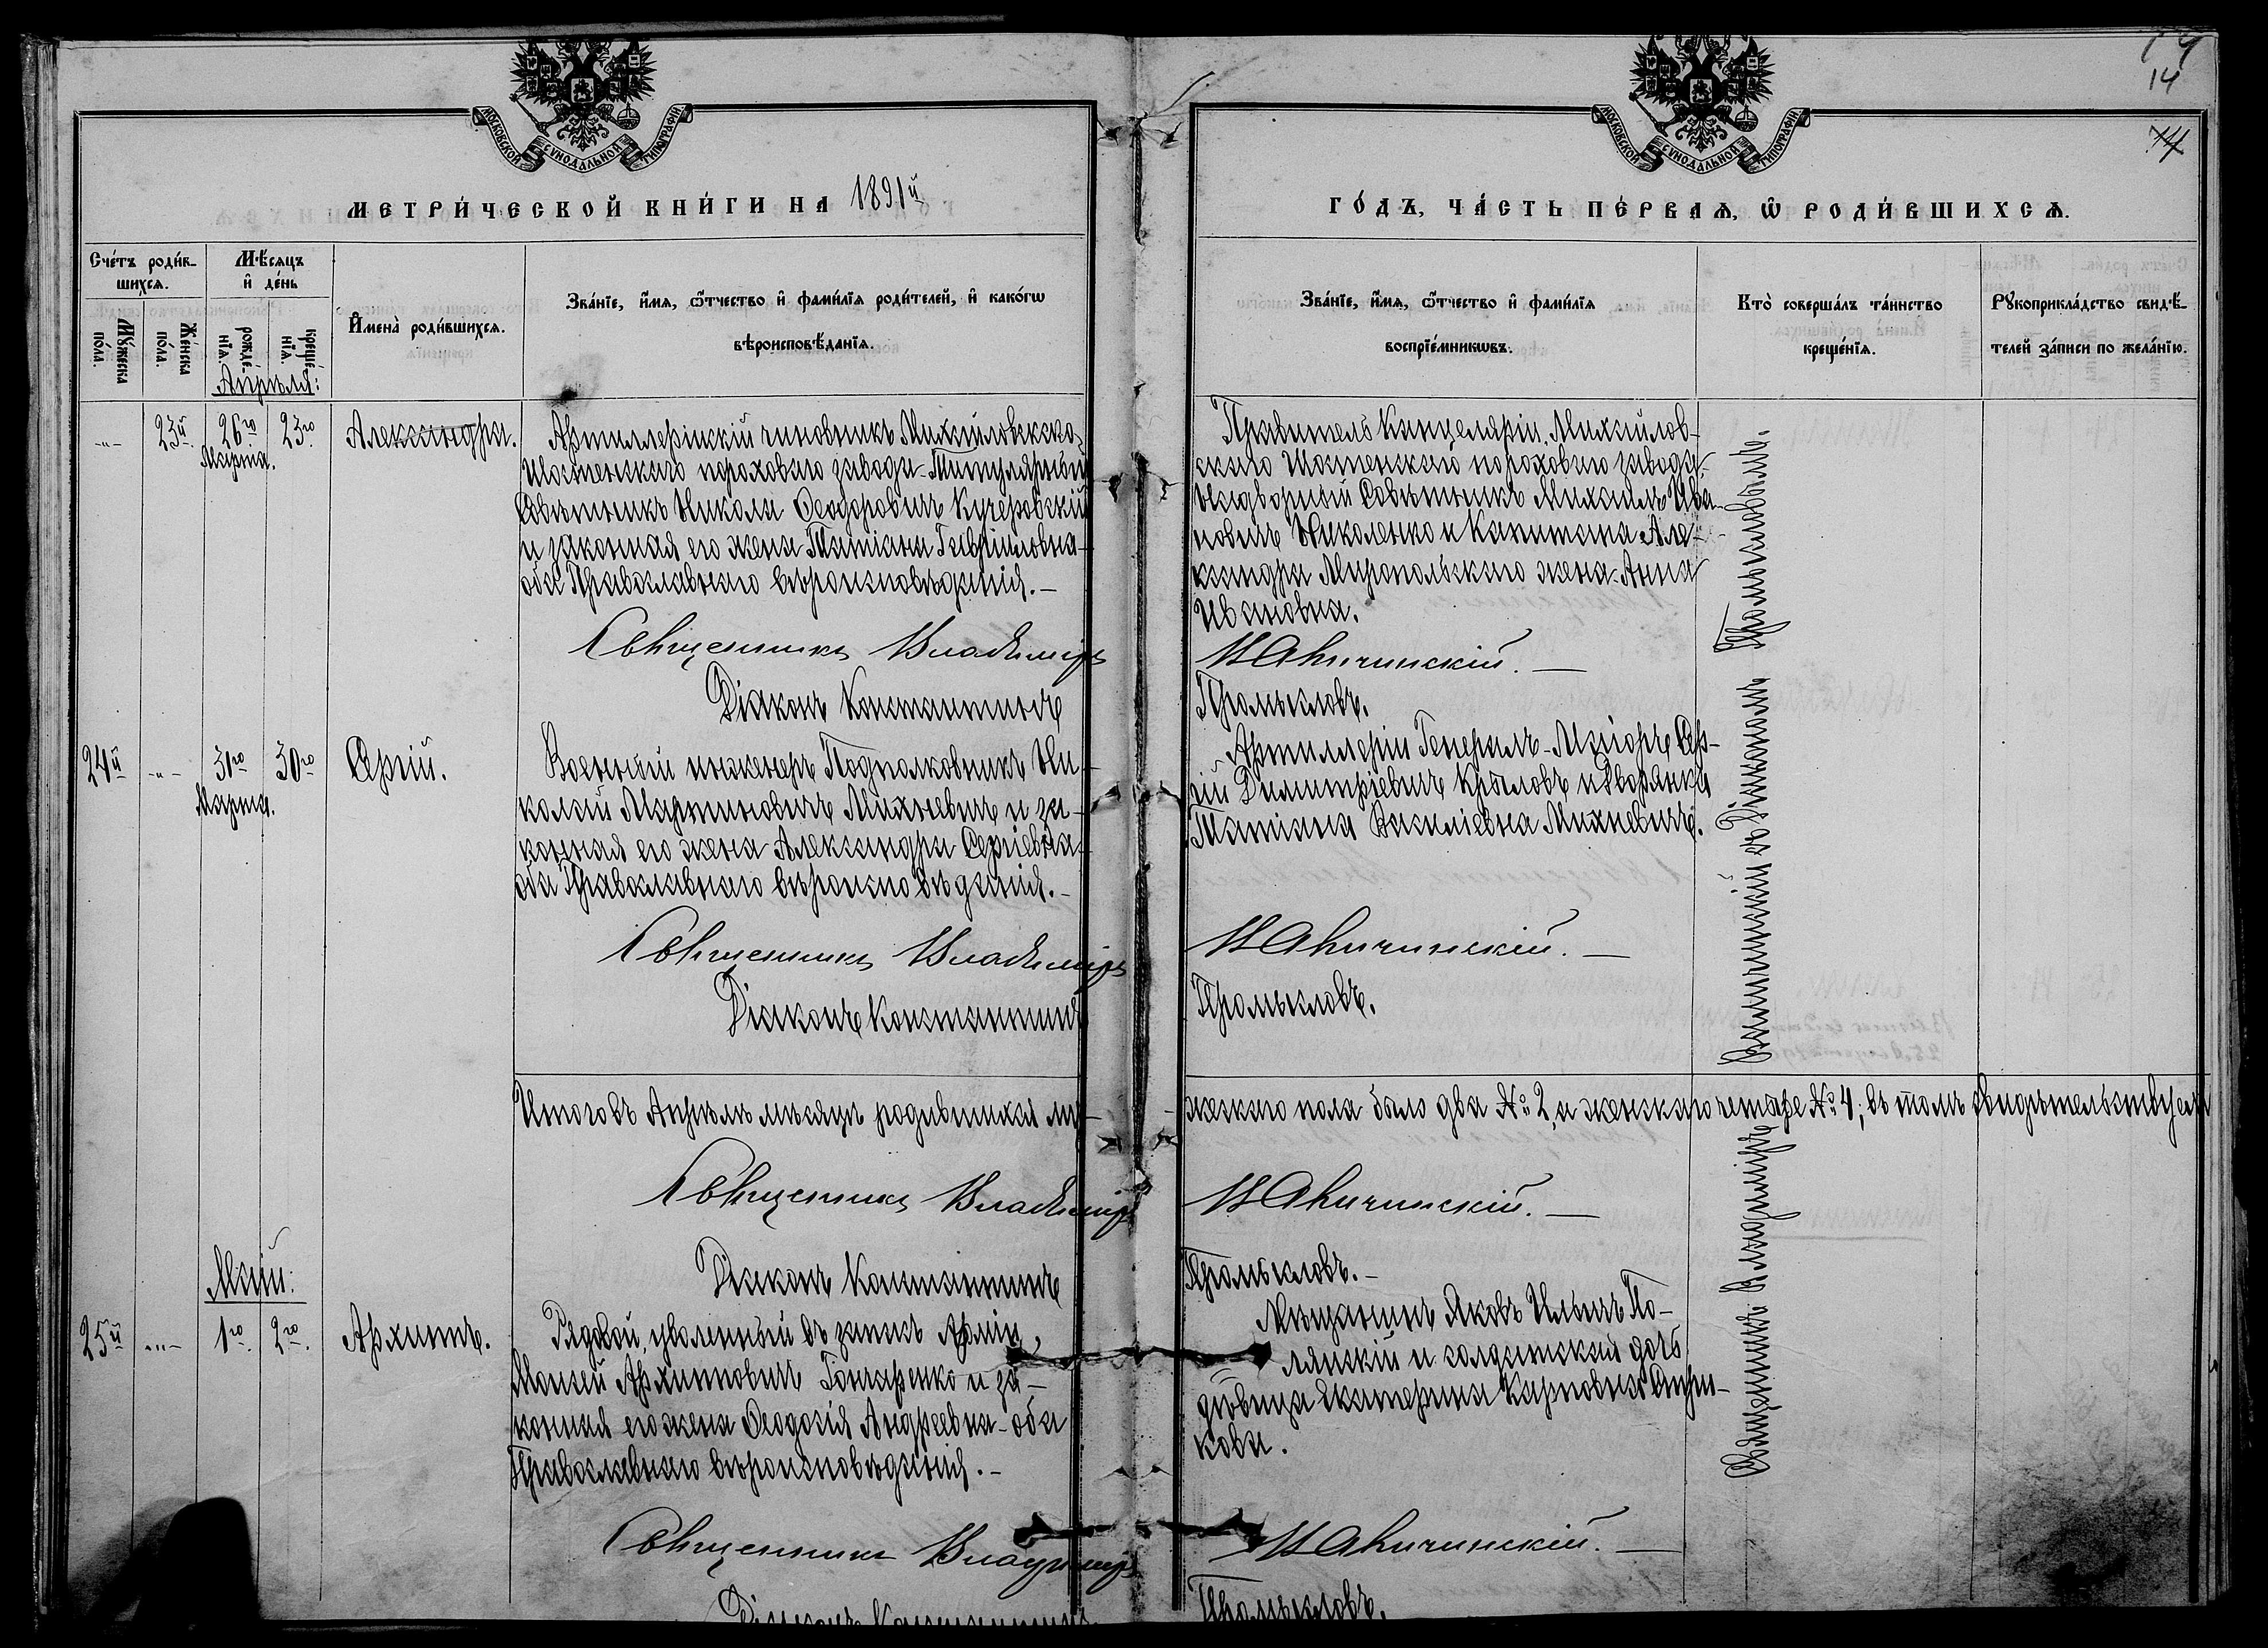 МОСКОВСКОЙ СѴНОДАЛЬНОЙ ТИПОГРАФІИ
МЕТРИ́ЧЕСКОЙ КНИ́ГИ НА 1891й
Сче́тъ роди́вшихся.
Мѣ́сяцъ и҆ де́нь
Мꙋ́жеска по́ла.
Же́нска по́ла.
рожде́нїѧ.
креще́нїѧ.
И҆мена̀ роди́вшихсѧ.
Зва́нїе, и҆́мѧ, ѻ҆́тчество и҆ фами́лїѧ роди́телей, и҆ како́гѡ
вѣроисповѣ́данїѧ.
Апрѣля:
-"- 23й 26го Марта. 23го Александра.
Артиллерійскій чиновникъ Михайловскаго
Шостенскаго пороховаго завода - Титулярный
Совѣтникъ Никола Ѳеодоровичъ Кучеровскій
и законная его жена Татіана Гавриловна -
оба Православнаго вѣроисповѣданія. -
Священникъ Владиміръ
Діаконъ Константинъ
24й -"- 31го Марта. 30го Сергій.
Военный инженеръ Подполковникъ Ни-
колай Мартиновичъ Михневичъ и за-
конная его жена Александра Сергіевна -
оба Православнаго вѣроисповѣданія. -
Священникъ Владиміръ
Діаконъ Константинъ
Итого въ Апрѣлѣ мѣсяцѣ родившихся му-
Священникъ Владиміръ
Діаконъ Константинъ
Май:
25й -"- 1го. 2го. Архипъ.
Рядовой, уволенный въ запасъ Арміи,
Моисей Архиповичъ Гончаренко и за-
конная его жена Ѳеодосія Андреевна - оба
Православнаго вѣроисповѣданія. -
Священникъ Владиміръ
Діаконъ Константинъ
14
МОСКОВСКОЙ СѴНОДАЛЬНОЙ ТИПОГРАФІИ
ГО́ДЪ, ЧА́СТЬ ПЕ́РВАѦ, Ѡ҆ РОДИ́ВШИХСѦ.
Зва́нїе, и҆́мѧ, ѻ҆́тчество и҆ фами́лїѧ
воспрїе́мникѡвъ.
Кто̀ соверша́лъ та́инство
креще́нїѧ.
Рꙋкоприкла́дство свидѣ́-
телей за́писи по жела́нїю.
Правитель Канцеляріи, Михайлов-
скаго Шостенскаго пороховаго завода
Надворный Совѣтникъ Михаилъ Ива-
новичъ Николенко и Капитана Але-
ксандра Миропольскаго жена - Анна
Ивановна.
Промысловъ.
Артиллеріи Генералъ-Маіоръ Сер-
гій Димитріевичъ Крыловъ и Дворянка
Татіана Василіевна Михневичъ.
Промысловъ.
жескаго пола было два № 2, а женскаго четыре № 4; въ томъ свидѣтельствуемъ
Промысловъ. -
Мѣщанинъ Яковъ Ильичъ По-
лянскій и солдатская дочь
дѣвица Екатерина Карповна
Промысловъ.
Священникъ Владиміръ
съ Діакономъ